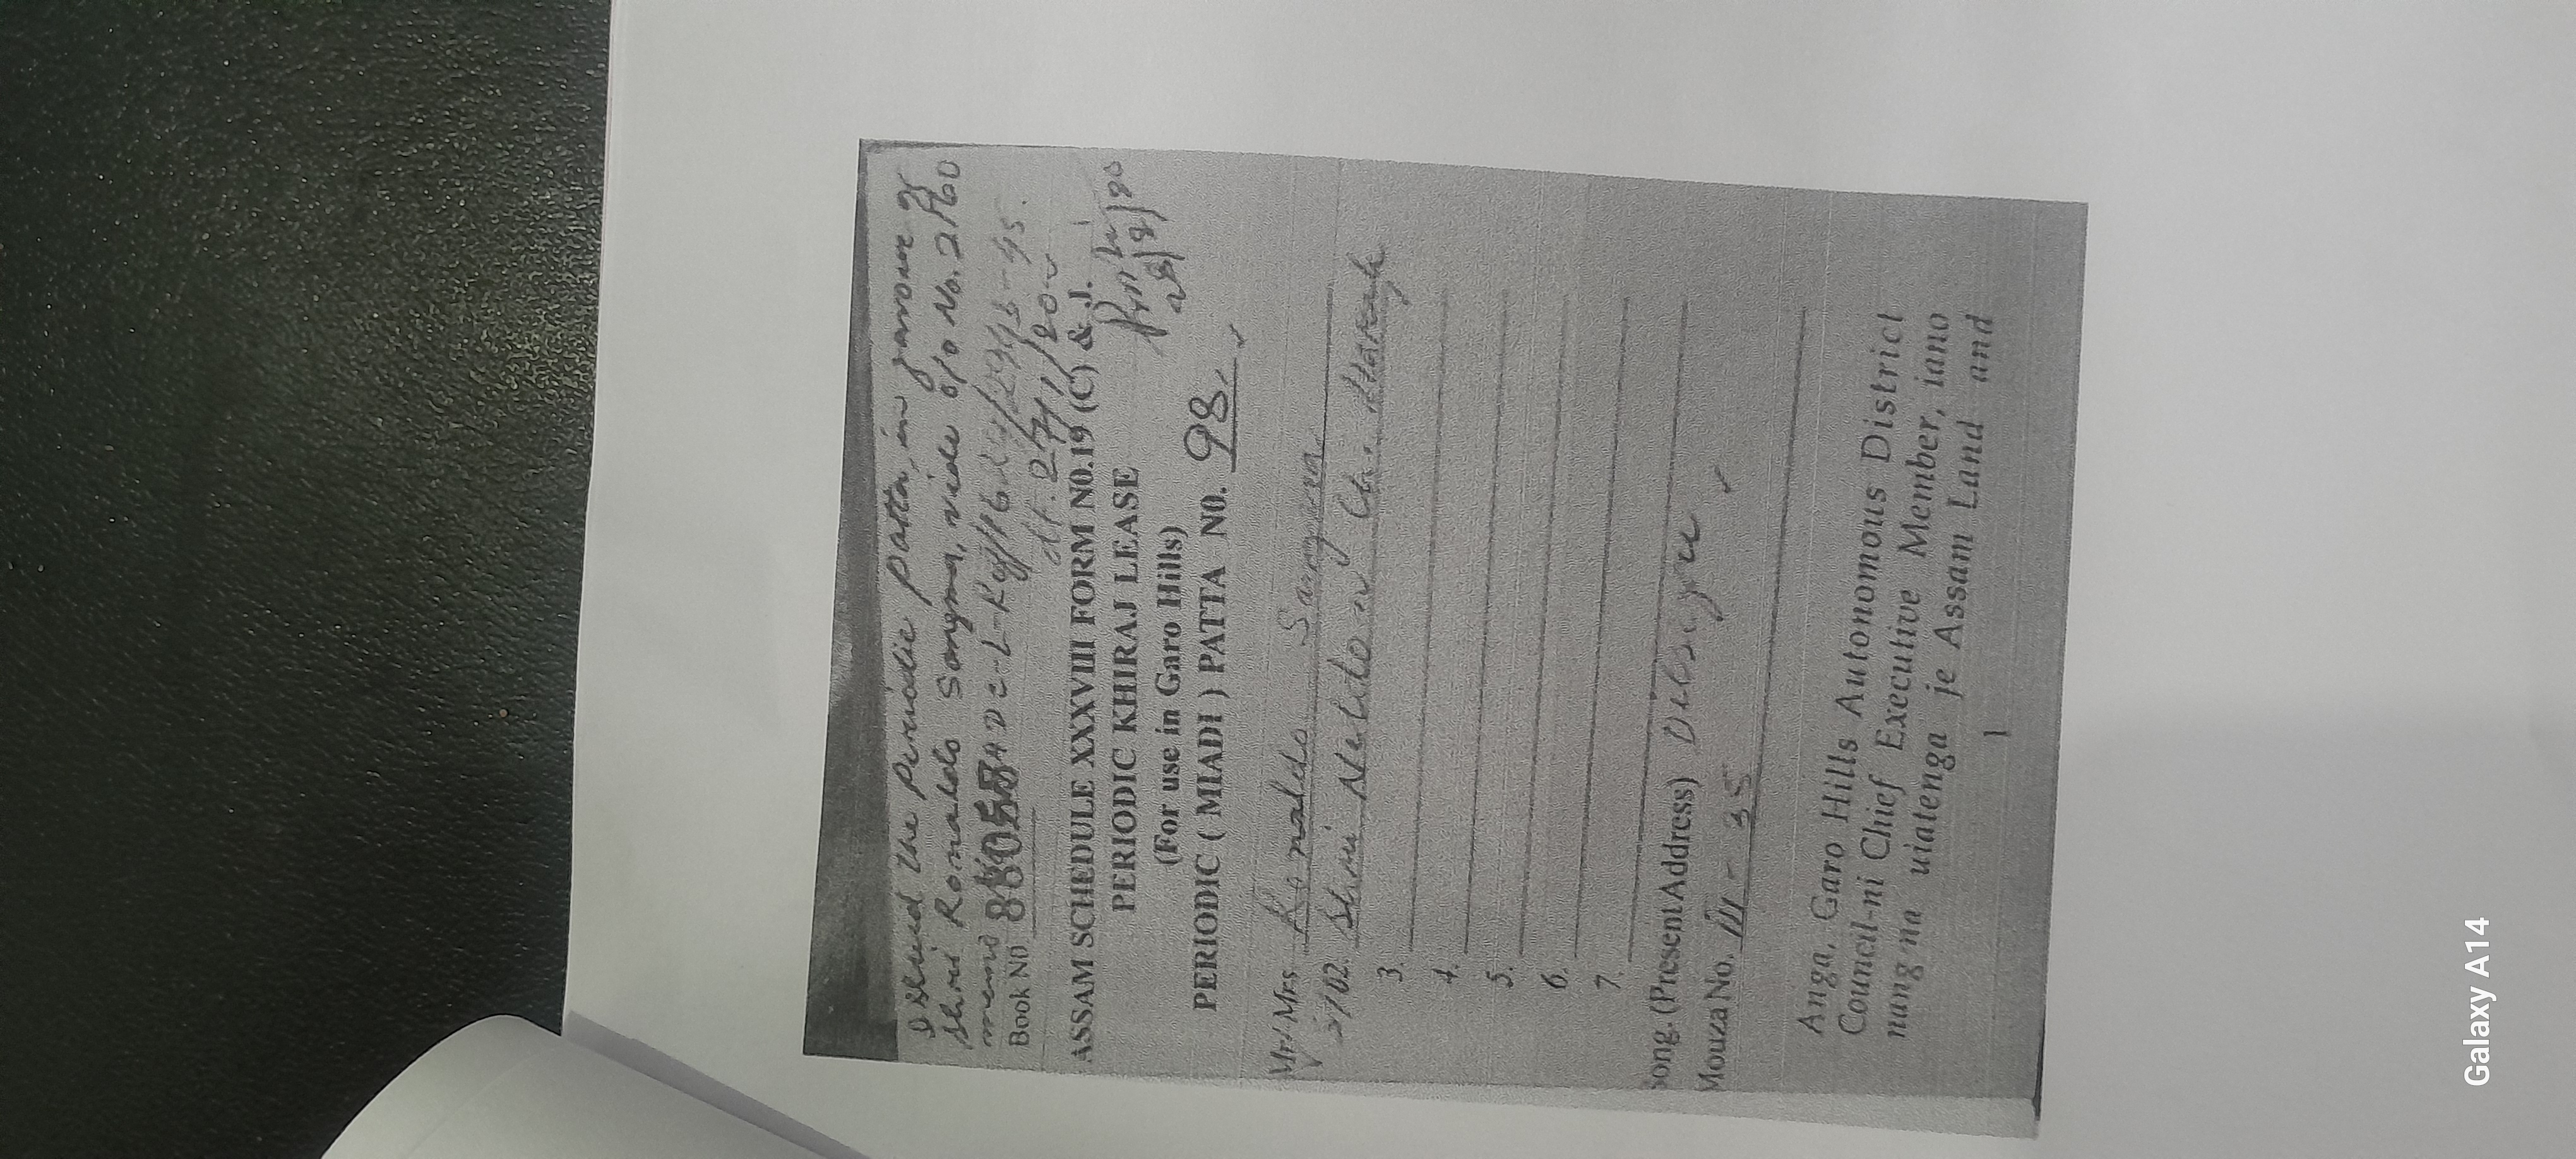 Issued the Periodic patta, in favour of
Shri Romaldo Sangma, vide o/o No. 2760
memo
Book NO
dt. 27/1/20
ASSAM SCHEDULE XXXVIII FORM N0.19 (C) & J.
PERIODIC KHIRAJ LEASE
(For use in Garo Hills)
PERIODIC ( MIADI ) PATTA N0. 98
Mr/ Mrs Romaldo Sangma
S/O2. Shri Ch. Marak
3.
4.
5.
6.
7.
Song. (Present Address)
Mouza No. III - 35
Anga, Garo Hills Autonomous District
Council-ni Chief Executive Member, iano
nang'na uiatenga je Assam Land and
1
Galaxy A14